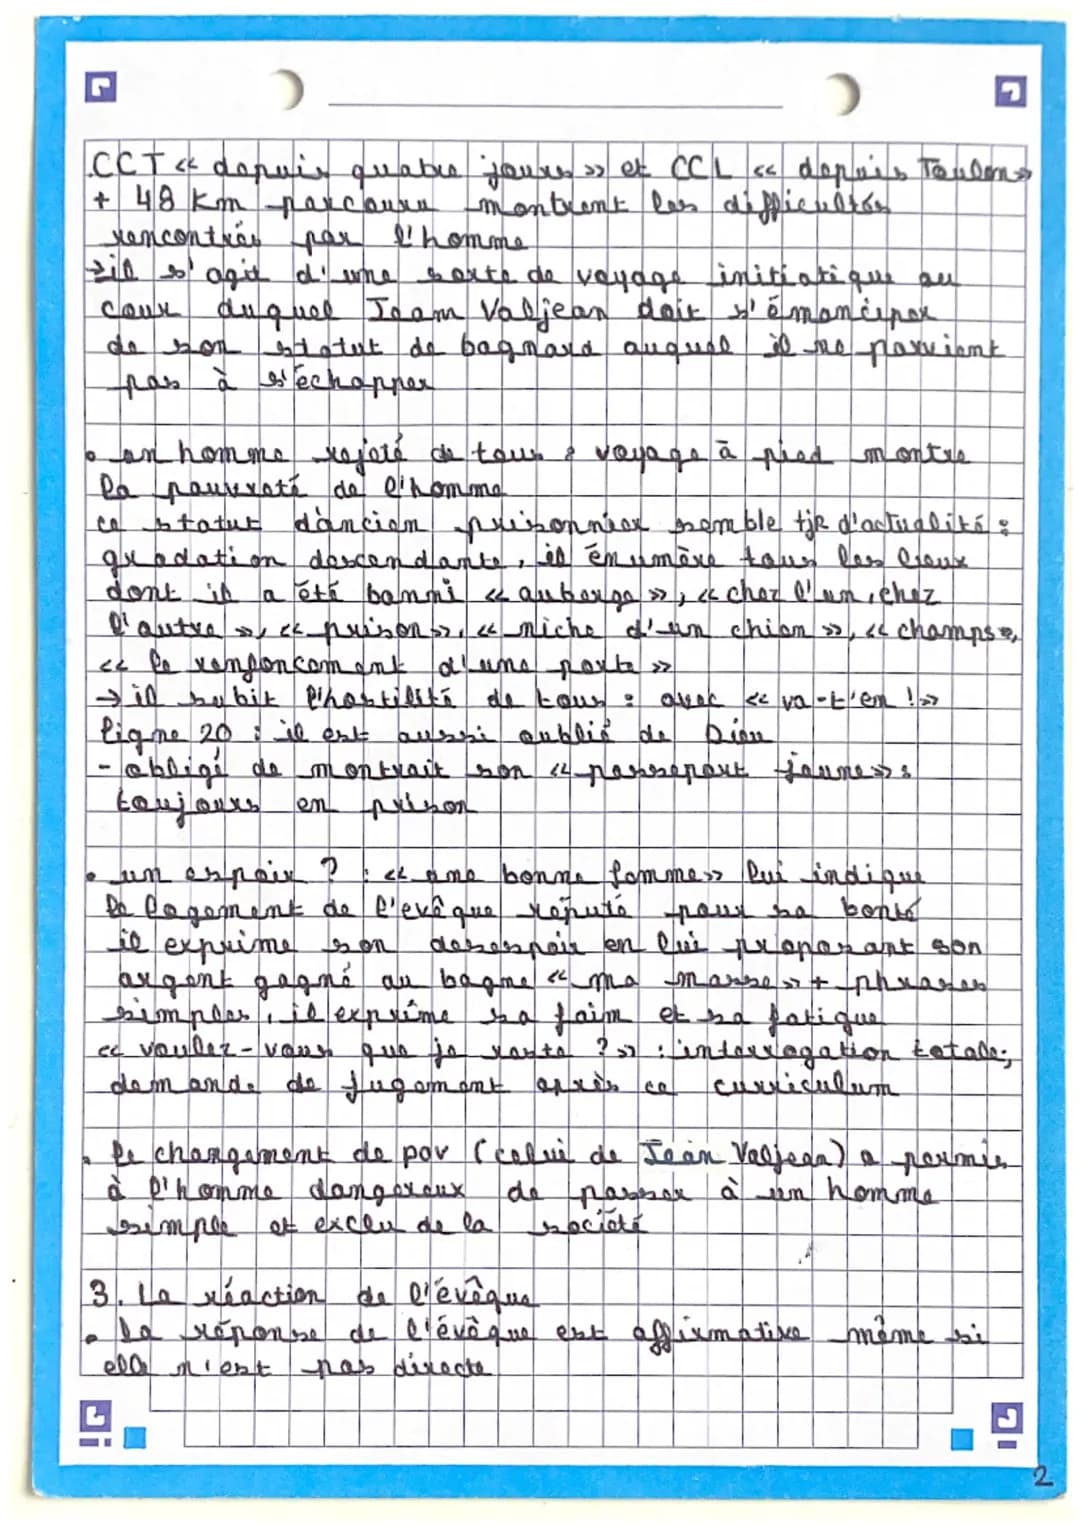 .CCT « depuis quatre jours » et CCL « depuis Toulon »
+ 48 km parcouru montrent les difficultés
rencontrés par l'homme
→il s'agit d'une sorte de voyage initiatique au
cour duquel Jean Valjean doit s'émanciper
de son statut de bagnard auquel il ne parvient
pas à s'échapper
• un homme rejeté de tous : voyage à pied montre
la pauvreté de l'homme
ce statut d'ancien prisonnier semble tjr d'actualité :
gradation descendante, il énumère tous les lieux
dont il a été banni « auberge », « chez l'un, chez
l'autre », « prison », « niche d'un chien », « champs »,
« le renfoncement d'une porte »
→ il subit l'hostilité de tous : avec « va-t'en ! »
ligne 20 : il est aussi oublié de Dieu
- obligé de montrait son « passeport jaune » :
toujours en prison
• un espoir ? : « une bonne femme » lui indique
le logement de l'evêque réputé pour sa bonté
il exprime son desespoir en lui proposant son
argent gagné au bagne « ma masse » + phrases
simples, il exprime sa faim et sa fatigue
« voulez-vous que je reste ? » : interrogation totale;
demande de jugement après ce curriculum
• le changement de pov (celui de Jean Valjean) a permis
à l'homme dangereux de passer à un homme
simple et exclu de la société
3. La réaction de l'évêque
• la réponse de l'évêque est affirmative même si
elle n'est pas directe
2